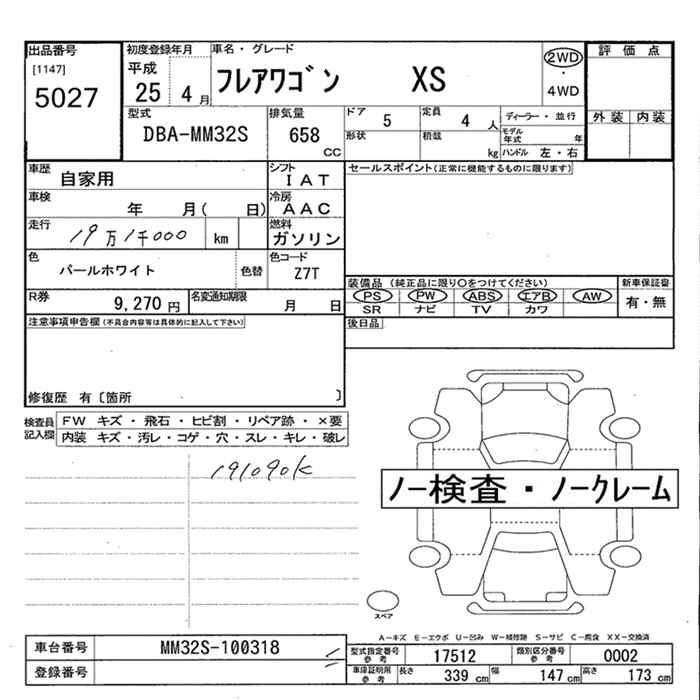 出品番号
[1147]
5027
初度登録年月
平成
25 4月
車名・グレード
フレアワゴン XS
2WD
・
4WD
評価点
外装 内装
型式
DBA-MM32S
排気量
658
CC
ドア 5
定員 4 人
ディーラー・並行
形状
積載 kg
モデル年式 年
ハンドル 左・右
車歴 自家用
シフト IAT
セールスポイント(正常に機能するものに限ります)
車検 年 月( 日)
冷房 AAC
走行 19万1千000 km
燃料 ガソリン
色 パールホワイト
色替
色コード Z7T
装備品 (純正品に限り○をつけてください)
新車保証書
PS PW ABS エアB AW
SR ナビ TV カワ
有・無
R券 9,270 円
名変通知期限 月 日
後日品
注意事項申告欄(不具合内容等は具体的に記入して下さい)
修復歴 有〔箇所 〕
検査員記入欄
FW キズ・飛石・ヒビ割・リペア跡・×要
内装 キズ・汚レ・コゲ・穴・スレ・キレ・破レ
191090K
ノー検査・ノークレーム
スペア
A-キズ E-エクボ U-凹み W-補修跡 S-サビ C-腐食 XX-交換済
車台番号 MM32S-100318
登録番号
型式指定番号参考 17512
類別区分番号参考 0002
車庫証明用参考 長さ 339 cm 幅 147 cm 高さ 173 cm